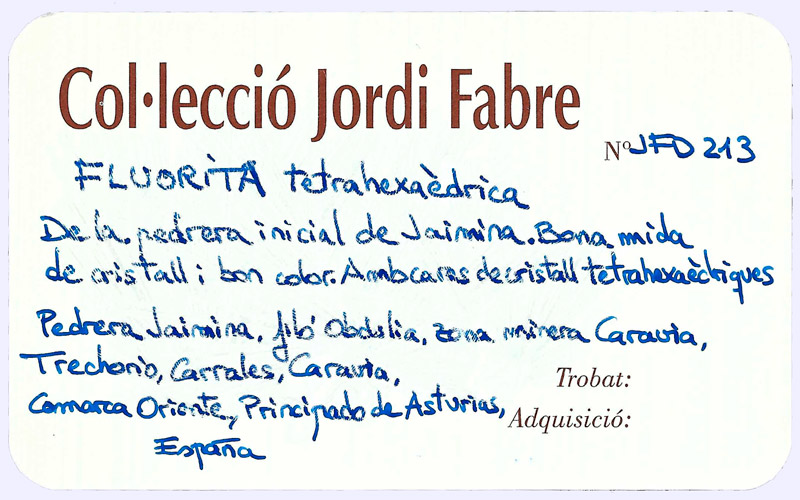 Col·lecció Jordi Fabre
Nº JFD 213
FLUORITA tetrahexaèdrica
De la pedrera inicial de Jaimina. Bona mida
de cristall i bon color. Amb cares de cristall tetrahexaèdriques
Pedrera Jaimina, filó Obdulia, zona minera Caravia,
Carrales, Caravia,
Trobat:
Comarca Oriente, Principado de Asturias,
Adquisició:
España